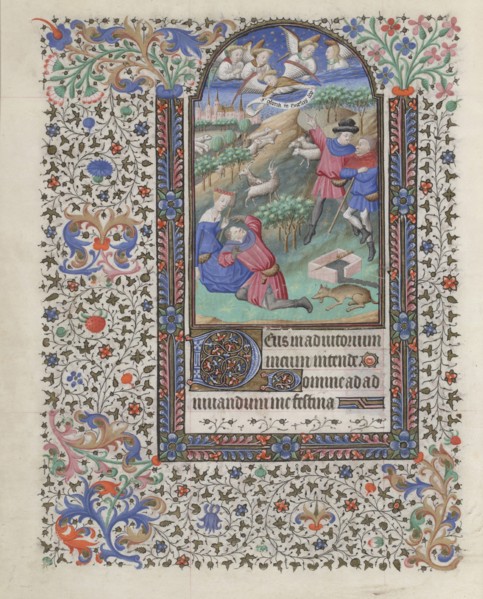 gloria in excelsis
Deus in adiutorium
meum intende
Domine ad ad
iuuandum me festina